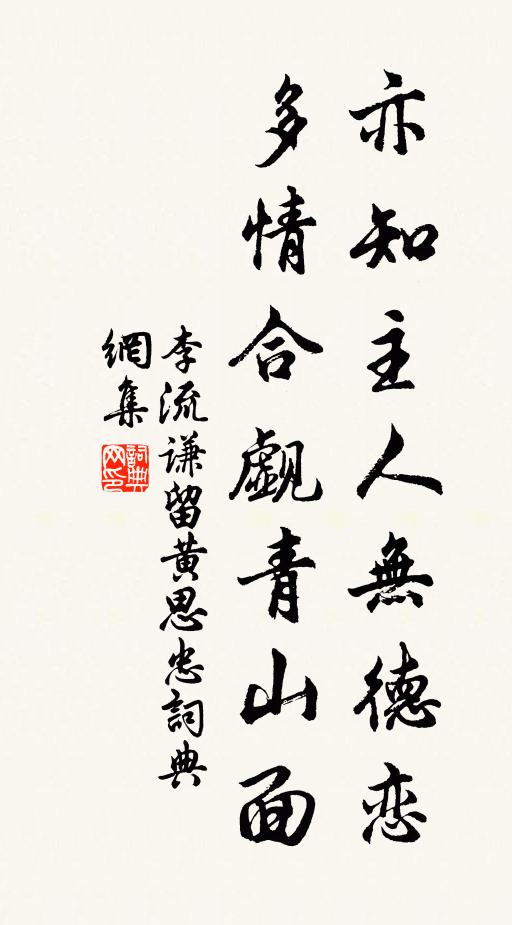 亦知主人無德恋
多情合覷青山面
李流谦留黄思忠詞典
網集
詞典
网印